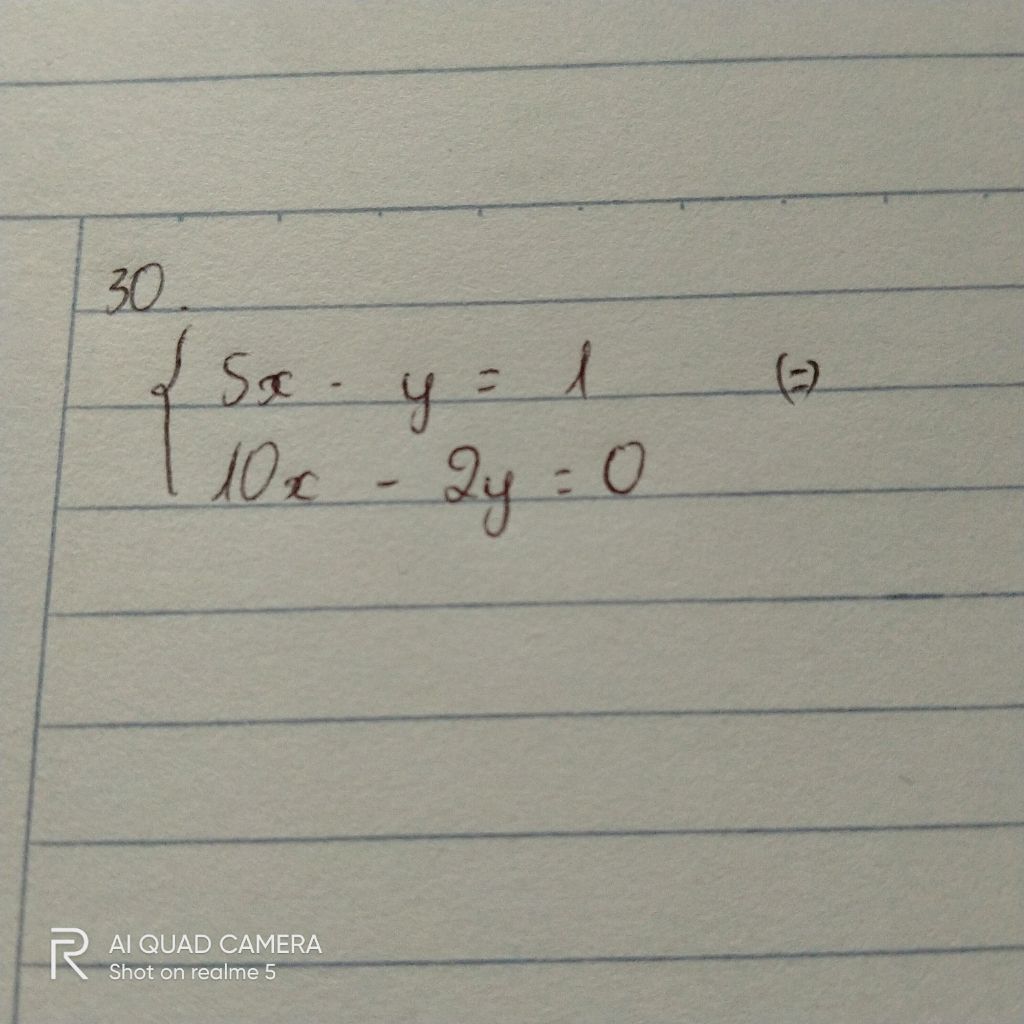 30.
{ 5x - y = 1 (=)
10x - 2y = 0
AI QUAD CAMERA
Shot on realme 5